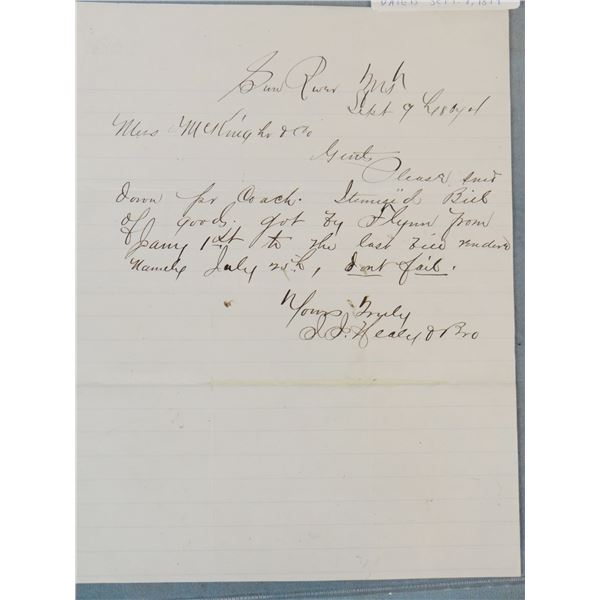 DATED SEPT. 9, 1879
Sun River M.T
Sept 9th 1879
Mess McKnight & Co
Gents
Please send
down per Coach. Itemised Bill
of goods got by Flynn from
Jany 1st to the last bill rendered
Namely July 25th, dont fail.
Yours Truly
J. J. Healy & Bro